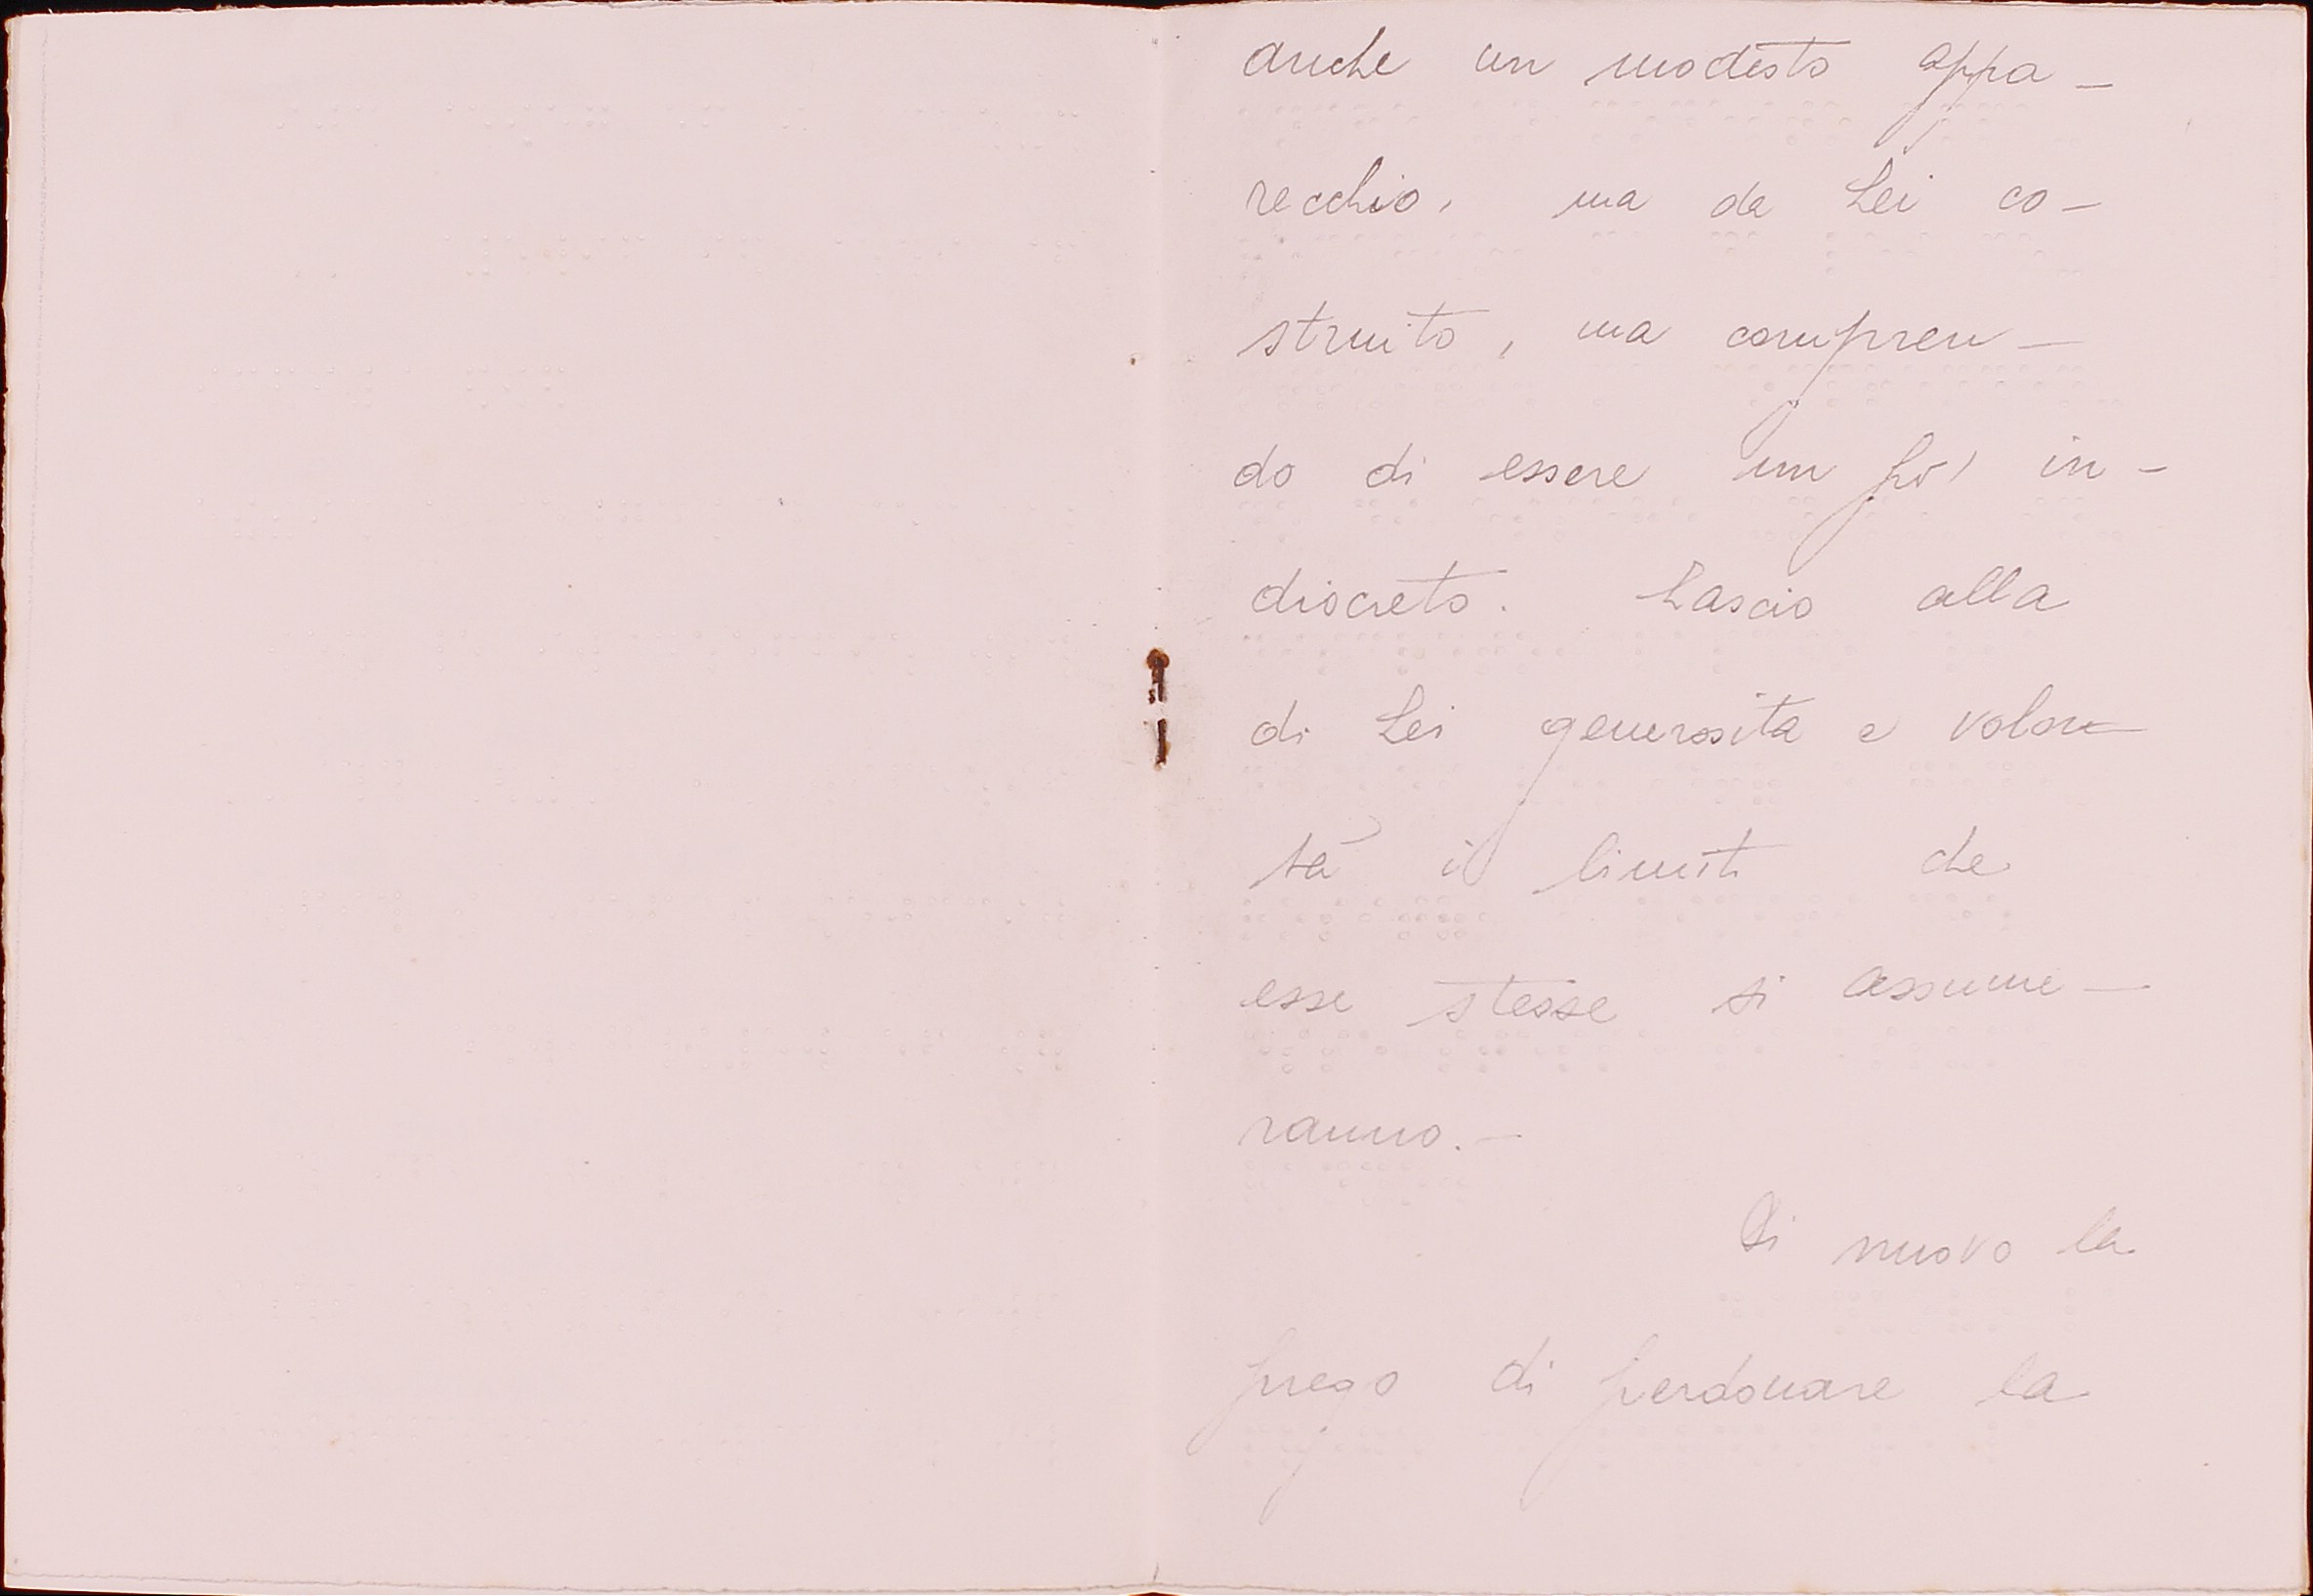 anche un modesto appa-
recchio, ma da Lei co-
struito, ma compren-
do di essere un po' in-
discreto. Lascio alla
di Lei generosità e volon-
tà i limiti che
esse stesse si assume-
ranno.-
Di nuovo la
prego di perdonare la